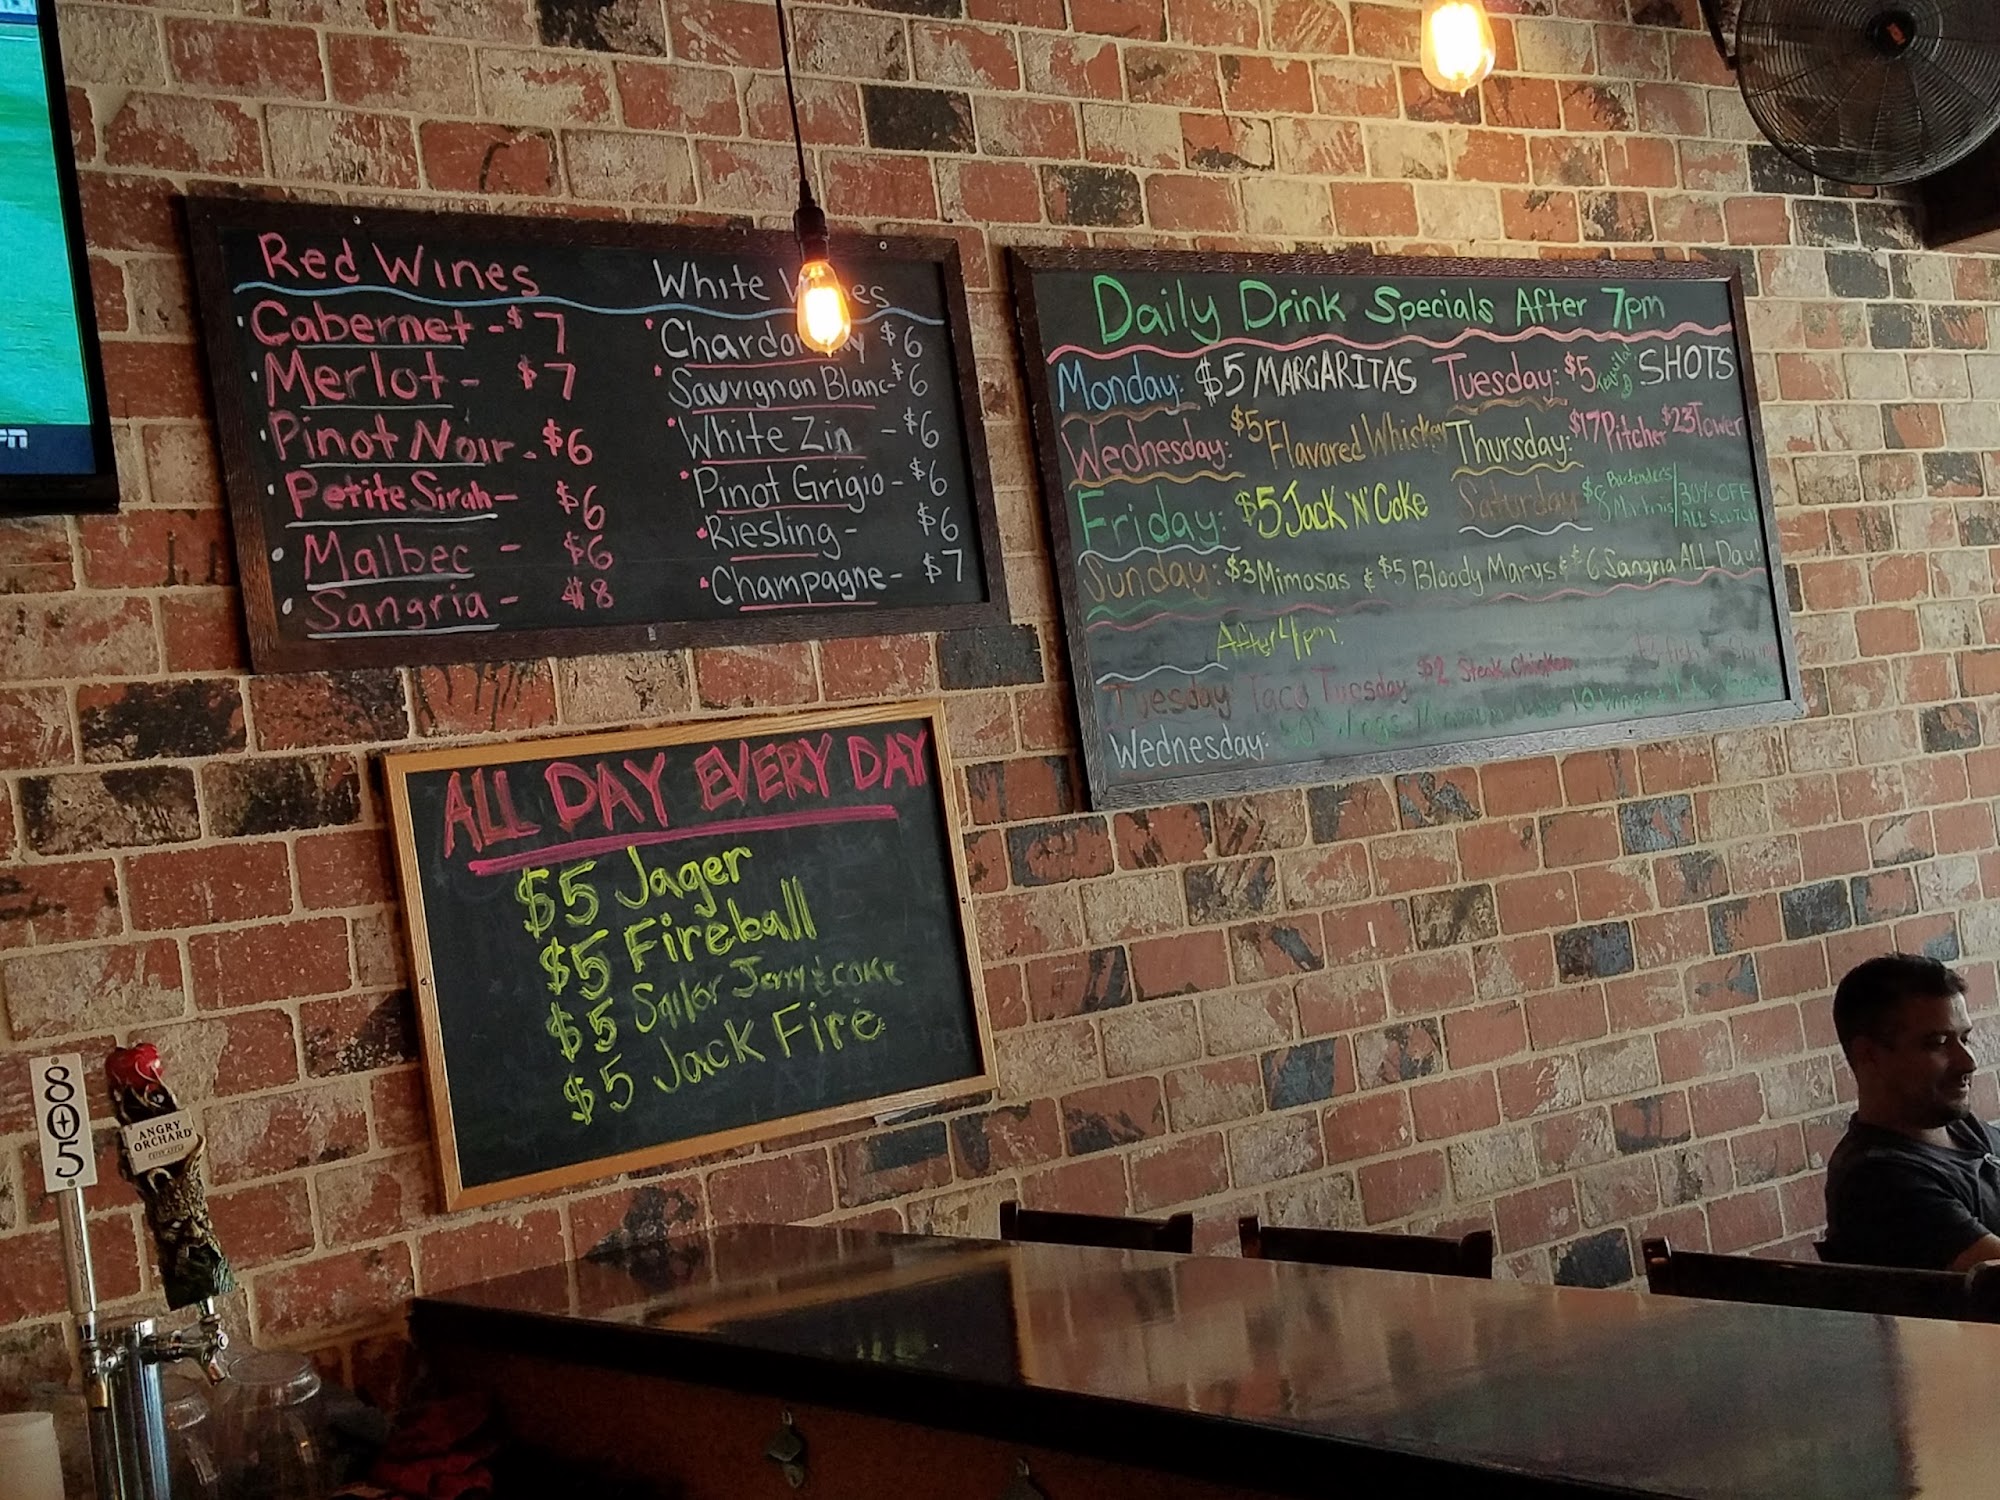 Red Wines
Cabernet - $7
Merlot - $7
Pinot Noir - $6
Petite Sirah - $6
Malbec - $6
Sangria - $8
White
Chardonnay $6
Sauvignon Blanc - $6
White Zin - $6
Pinot Grigio - $6
Riesling - $6
Champagne - $7
Daily Drink Specials After 7pm
Monday: $5 MARGARITAS Tuesday: $5 Tequila SHOTS
Wednesday: $5 Flavored Whiskey Thursday: $17 Pitcher $23 Tower
Friday: $5 Jack 'N' Coke Saturday: $8 Bartender's Martinis / 30% OFF ALL
Sunday: $3 Mimosas & $5 Bloody Marys & $6 Sangria ALL Day!
After 4pm:
Tuesday: Taco Tuesday $2 Steak Chicken
Wednesday:
ALL DAY EVERY DAY
$5 Jager
$5 Fireball
$5 Sailor Jerry & COKE
$5 Jack Fire
805
ANGRY
ORCHARD